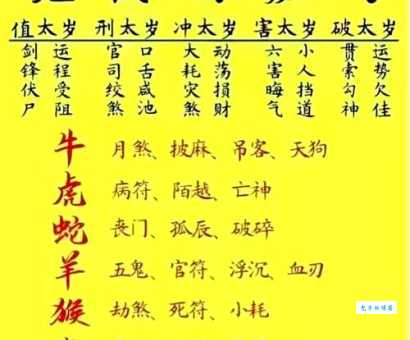 值太岁 刑太岁 冲太岁 害太岁 破太岁
剑锋伏尸 运程受阻 官司绞煞 口舌咸池 大耗灾煞 动荡损财 六害晦气 小人挡道 贯索勾神 运势欠佳
牛 月煞、披麻、吊客、天狗
虎 病符、陌越、亡神
蛇 丧门、孤辰、破碎
羊 五鬼、官符、浮沉、血刃
猴 劫煞、死符、小耗